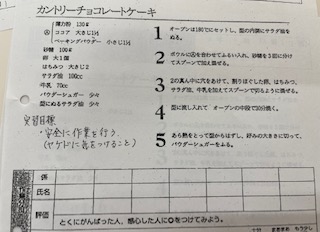 カントリーチョコレートケーキ
薄力粉 130g
Ⓐ ココア 大さじ1½
ベーキングパウダー 小さじ1½
砂糖 100g
卵 大1個
はちみつ 大さじ2
サラダ油 100cc
牛乳 70cc
パウダーシュガー 少々
型にぬるサラダ油 少々
1 オーブンは180℃にセットし、型の内側にサラダ油を
ぬる。
2 ボウルにⒶを合わせてふるい入れ、砂糖を3回に分け
てスプーンで加えてまぜる。
3 2の真ん中に穴をあけて、割りほぐした卵、はちみつ、
サラダ油、牛乳を加えてスプーンで切るように混ぜる。
4 型に流し入れて オーブンの中段で30分焼く。
5 あら熱をとって型からはずし、好みの大きさに切って、
パウダーシュガーをふる。
実習目標
・安全に作業を行う
(ヤケドに気をつけること)
係
氏名
評価
とくにがんばった人、感心した人に○をつけてみよう。